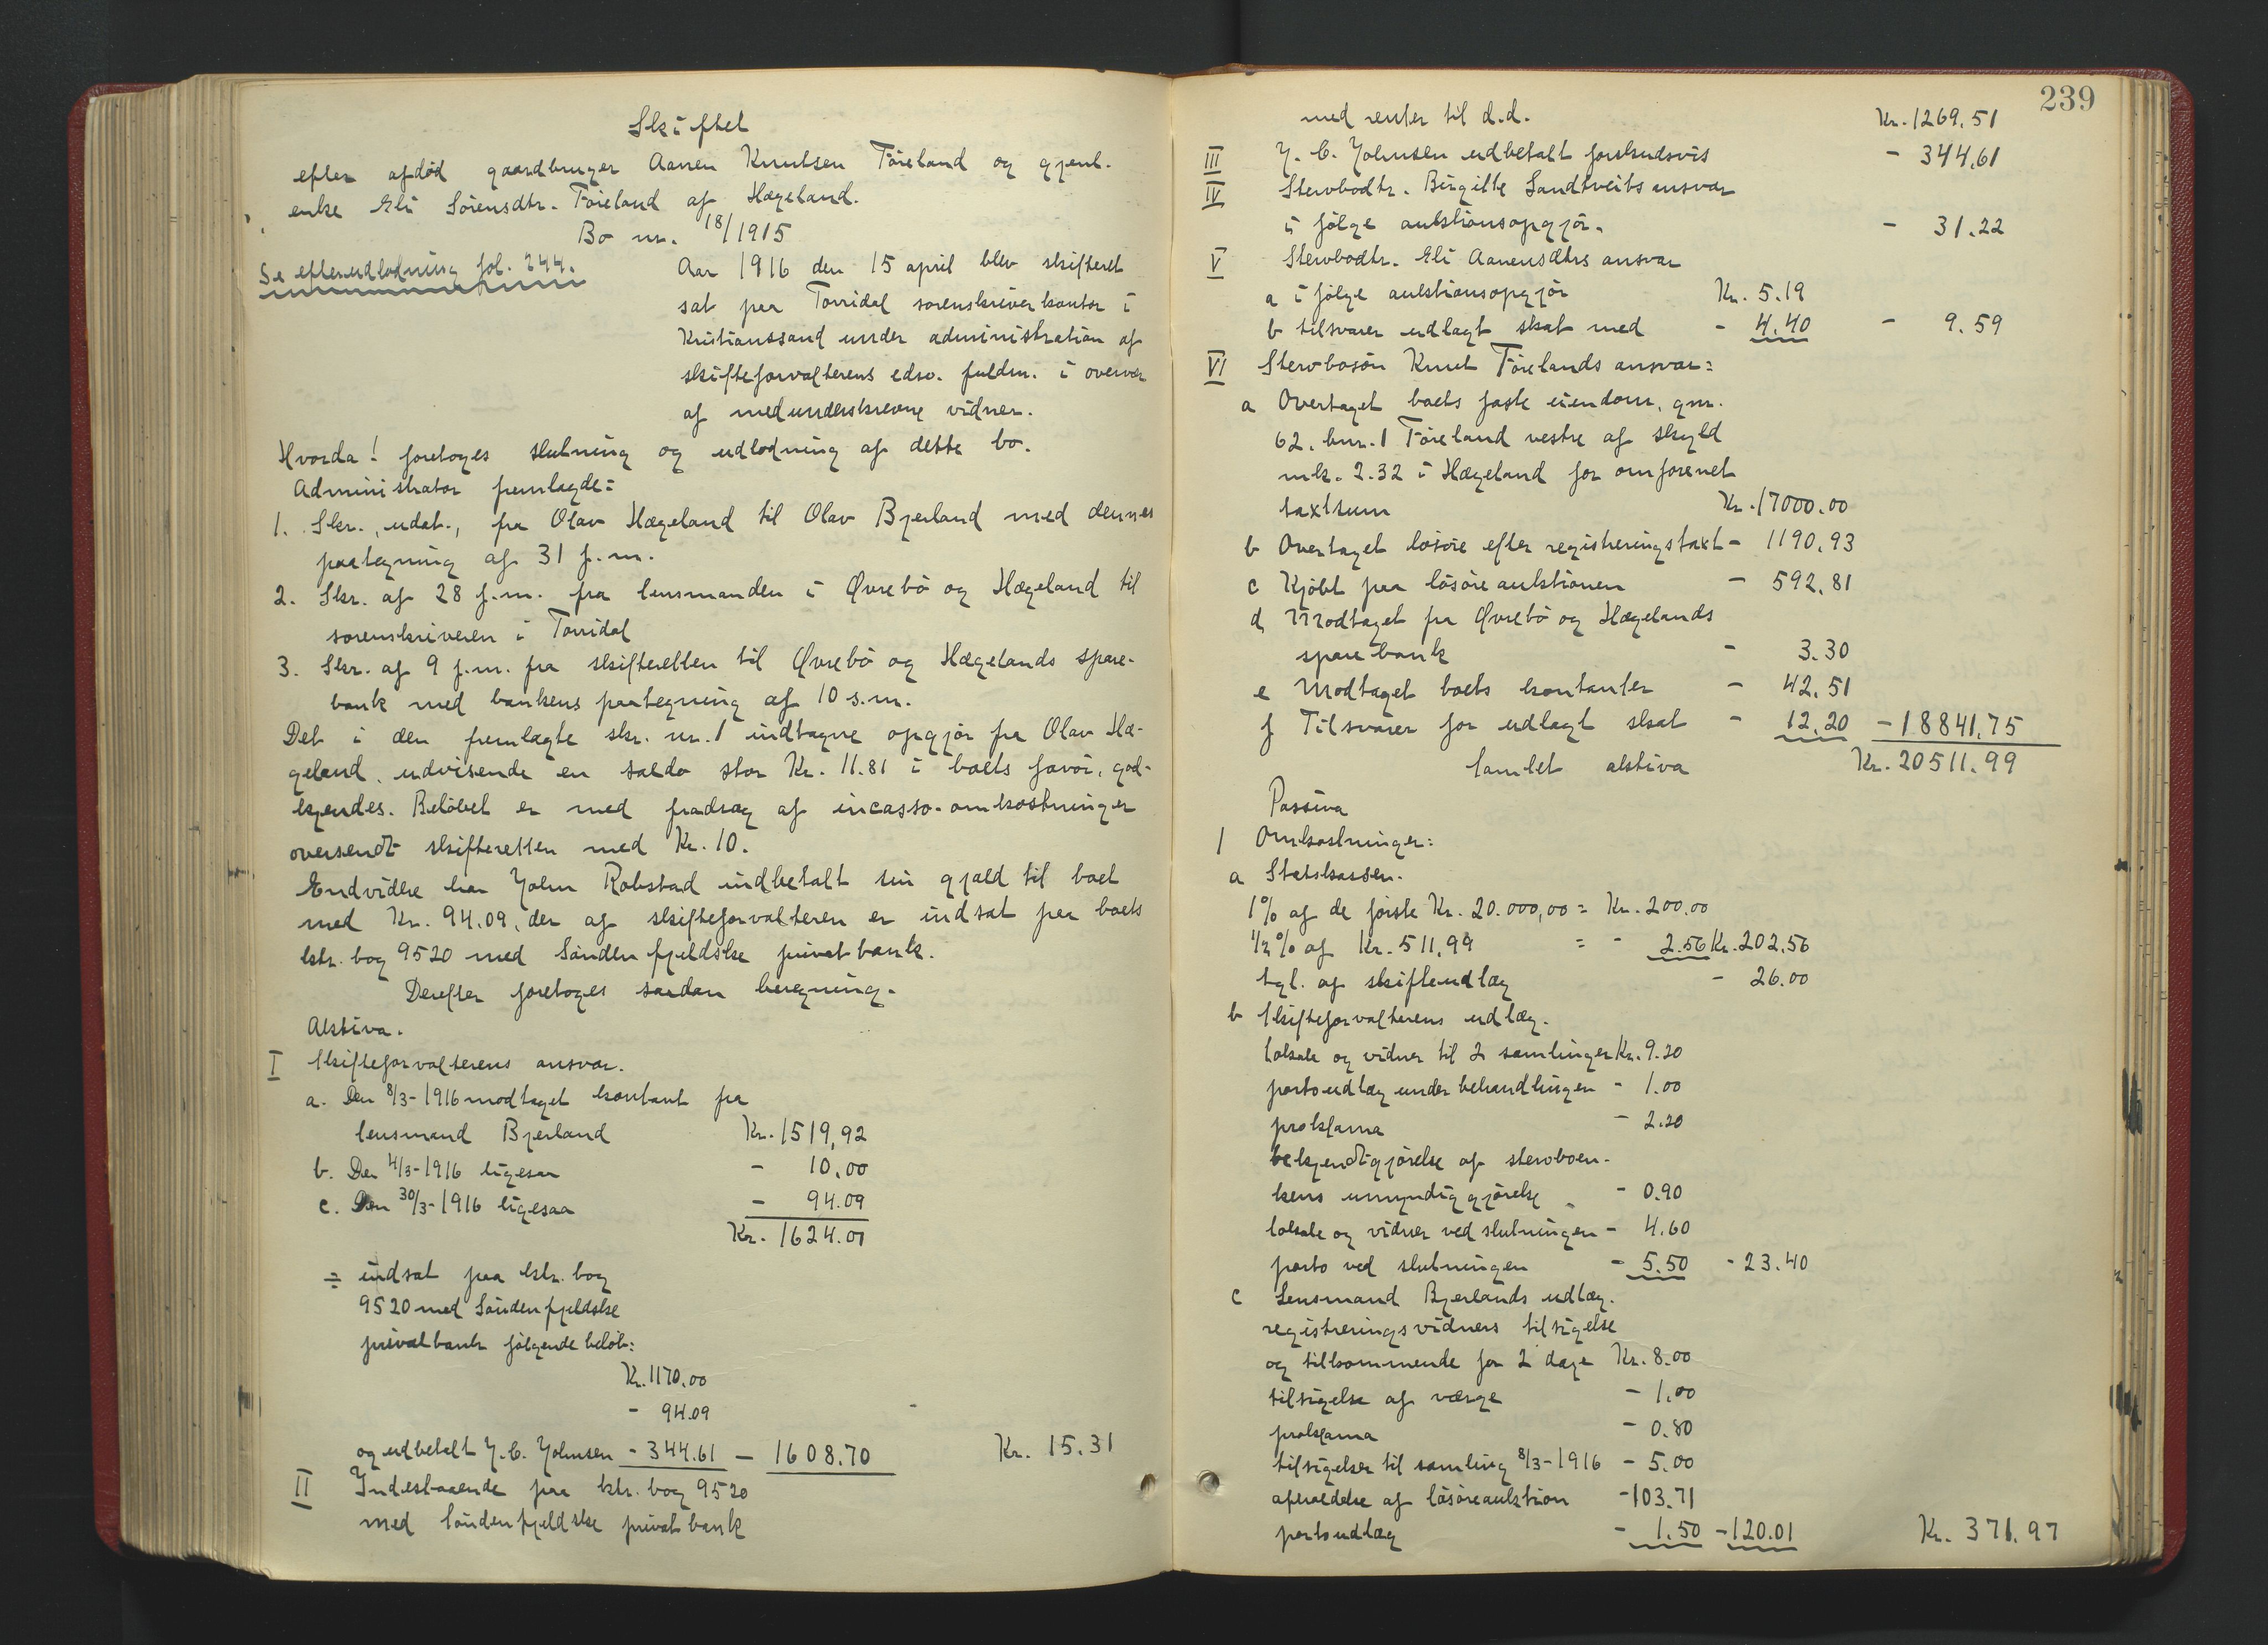 Skiftet
efter afdød gaardbruger Aanen Knutsen Föreland og gjenl.
enke Eli Sörensdtr. Föreland af Hægeland.
Bo nr. 18/1915
Se efterudlodning fol. 244.
Aar 1916 den 15 april blev skifteret
sat paa Torridal sorenskriverkontor i
Kristianssand under administration af
skifteforvalterens edsv. fuldm. i overvær
af medunderskrevne vidner.
Hvorda! foretoges slutning og udlodning af dette bo.
Administrator fremlagde:
1. Skr., udat., fra Olav Hægeland til Olav Bjerland med dennes
paategning af 31 f.m.
2. Skr. af 28 f.m. fra lensmanden i Øvrebö og Hægeland til
sorenskriveren i Torridal
3. Skr. af 9 f.m. fra skifteretten til Øvrebö og Hægelands spare-
bank med bankens paategning af 10 s.m.
Det i den fremlagte skr. nr. 1 indtagne opgjör fra Olav Hæ-
geland, udvisende en saldo stor Kr. 11.81 i boets favör, god-
kjendes. Belöbet er med fradrag af incasso-omkostninger
oversendt skifteretten med Kr. 10.
Endvidere har John Robstad indbetalt sin gjæld til boet
med Kr. 94.09, der af skifteforvalteren er indsat paa boets
ktr. bog 9520 med Söndenfjeldske privatbank.
Derefter foretoges saadan beregning.
Aktiva.
I Skifteforvalterens ansvar.
a. Den 8/3-1916 modtaget kontant fra
lensmand Bjerland Kr. 1519,92
b. Den 4/3-1916 ligesaa - 10,00
c. Den 30/3-1916 ligesaa - 94.09
Kr. 1624.01
÷ indsat paa ktr. bog
9520 med Söndenfjeldske
privatbank følgende belöb:
Kr. 1170,00
- 94.09
og udbetalt J. C. Johnsen - 344.61 - 1608.70 Kr. 15.31
II Indestaaende paa ktr. bog 9520
med Söndenfjeldske privatbank
239
med renter til d.d. Kr. 1269.51
III J. C. Johnsen udbetalt forskudsvis - 344,61
IV Stervbodtr. Birgitte Sandtveits ansvar
i følge auktionsopgjör. - 31.22
V Stervbodtr. Eli Aanensdtrs ansvar
a i følge auktionsopgjör Kr. 5.19
b tilsvarer udlagt skat med - 4.40 - 9.59
VI Stervbosön Knut Förelands ansvar:
a Overtaget boets faste eiendom, gnr.
62, bnr. 1 Föreland vestre af skyld
mk. 2.32 i Hægeland for omforenet
taxtsum Kr. 17000.00
b Overtaget lösöre efter registreringstaxt - 1190,93
c Kjöbt paa lösöreauktionen - 592,81
d Modtaget fra Øvrebö og Hægelands
sparebank - 3.30
e Modtaget boets kontanter - 42,51
f Tilsvarer for udlagt skat - 12,20 - 18841,75
Samlet aktiva Kr. 20511.99
Passiva
1 Omkostninger:
a Statskassen.
1% af de förste Kr. 20.000,00 = Kr. 200.00
1/2% af Kr. 511,99 = - 2.56 Kr. 202,56
tgl. af skifteudlæg - 26.00
b Skifteforvalterens udlæg.
lokale og vidner til 2 samlinger Kr. 9.20
portoudlæg under behandlingen - 1.00
proklama - 2.20
bekjendtgjörelse af stervboen-
kens umyndiggjörelse - 0.90
lokale og vidner ved slutningen - 4.60
porto ved slutningen - 5.50 - 23.40
c Lensmand Bjerlands udlæg.
registreringsvidners tilsigelse
og tilkommende for 2 dage Kr. 8.00
tilsigelse af værge - 1.00
proklama - 0.80
tilsigelser til samling 8/3-1916 - 5.00
afholdelse af lösöreauktion - 103.71
portoudlæg - 1.50 - 120.01 Kr. 371.97